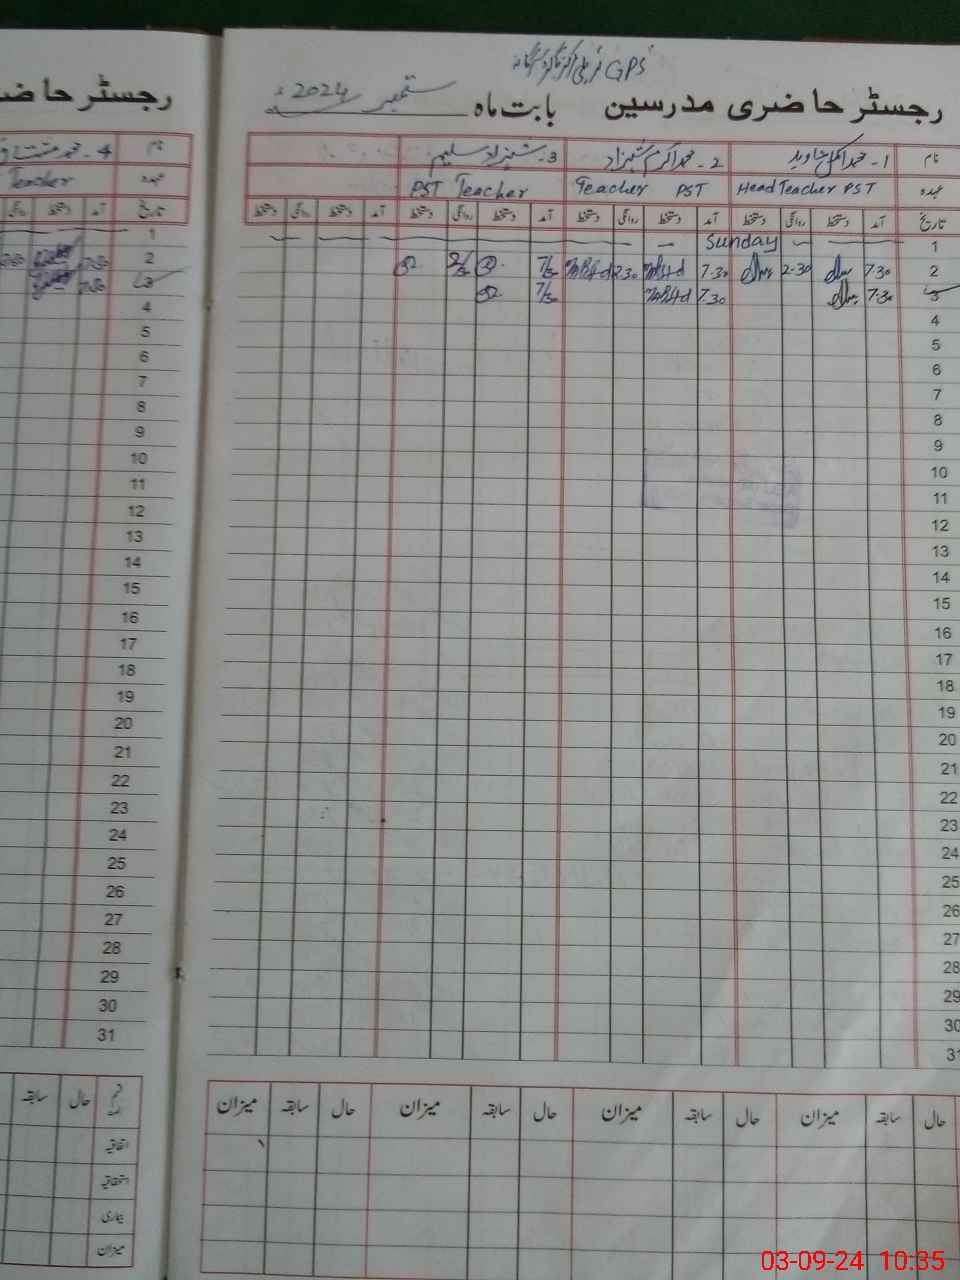 GPS
رجسٹر حاضری مدرسین بابت ماہ ستمبر 2024ء
نام 1۔ محمد اکمل جاوید 2۔ محمد اکرم شہزاد 3۔ شہزاد سلیم
عہدہ Head Teacher PST Teacher PST PST Teacher
تاریخ آمد دستخط روانگی دستخط آمد دستخط روانگی دستخط آمد دستخط روانگی دستخط آمد دستخط روانگی دستخط
1 Sunday
2 7.30 2-30 7.30 2.30 7/30 2/30
3 7.30 7.30 7/30
4
5
6
7
8
9
10
11
12
13
14
15
16
17
18
19
20
21
22
23
24
25
26
27
28
29
30
31
حال سابقہ میزان حال سابقہ میزان حال سابقہ میزان حال سابقہ میزان
رجسٹر حاض
نام 4۔ محمد مشتاق
عہدہ Teacher
تاریخ آمد دستخط روانگی
1
2 7.30 2.30
3 7.30
4
5
6
7
8
9
10
11
12
13
14
15
16
17
18
19
20
21
22
23
24
25
26
27
28
29
30
31
حال سابقہ
اتفاقیہ
استحقاقیہ
بیماری
میزان
03-09-24 10:35